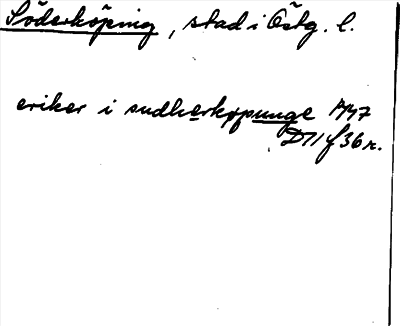 Söderköping, stad i Östg. l.
eriker i sudherkøpunge
D11 f 36 r.